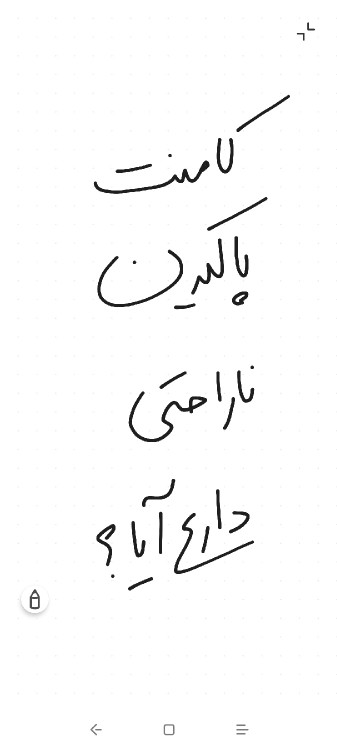 کامنت
پاکدین
ناراحتی
داری آیا؟